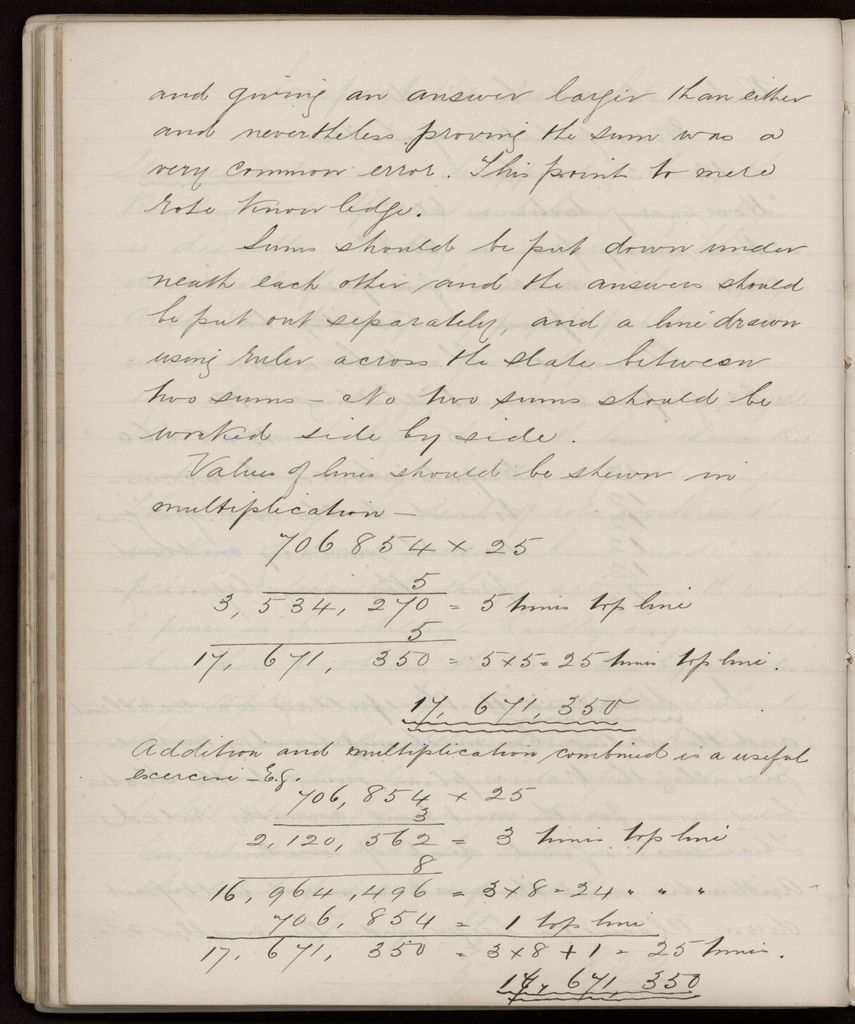 and giving an answer larger than either
and nevertheless proving the sum was a
very common error. This point to mere
rote knowledge.
Sums should be put down under
neath each other and the answers should
be put out separately, and a line drawn
using ruler across the slate between
two sums - No two sums should be
worked side by side.
Values of lines should be shewn in
multiplication -
706 854 × 25
5
3, 534, 270 = 5 times top line
5
17, 671, 350 = 5×5 = 25 times top line.
17, 671, 350
Addition and multiplication combined is a useful
exercise - E.g.
706, 854 × 25
3
2, 120, 562 = 3 times top line
8
16, 964, 496 = 3×8 = 24 " " "
706, 854 = 1 top line
17, 671, 350 = 3×8 + 1 = 25 times.
17, 671, 350